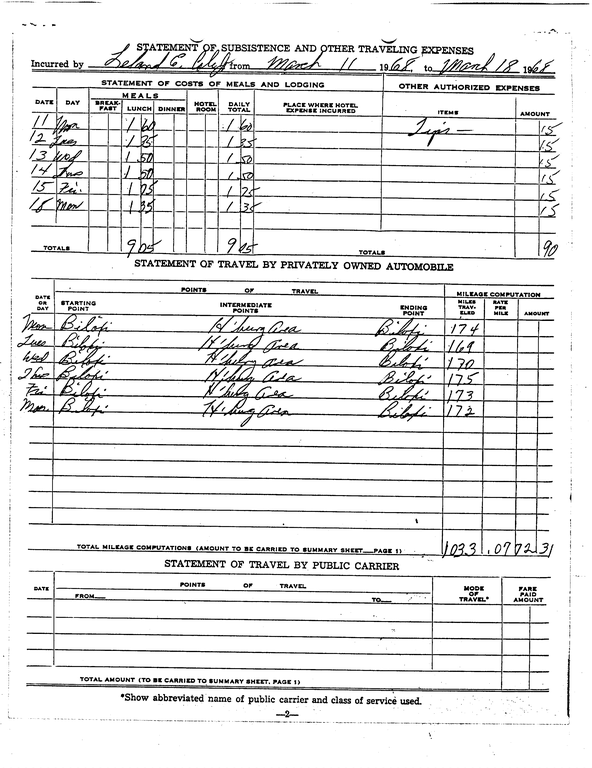 STATEMENT OF SUBSISTENCE AND OTHER TRAVELING EXPENSES
Incurred by Leland E. from March 11 1968, to March 18 1968
STATEMENT OF COSTS OF MEALS AND LODGING OTHER AUTHORIZED EXPENSES
DATE DAY MEALS BREAK-FAST LUNCH DINNER HOTEL ROOM DAILY TOTAL PLACE WHERE HOTEL EXPENSE INCURRED ITEMS AMOUNT
11 Mon 1 60 1 60 Tips — 15
12 Tues 1 35 1 35 15
13 Wed 1 50 1 50 15
14 Thus 1 50 1 50 15
15 Fri. 1 75 1 75 15
18 Mon 1 35 1 35 15
TOTALS 9 05 9 05 TOTALS 90
STATEMENT OF TRAVEL BY PRIVATELY OWNED AUTOMOBILE
POINTS OF TRAVEL MILEAGE COMPUTATION
DATE OR DAY STARTING POINT INTERMEDIATE POINTS ENDING POINT MILES TRAV-ELED RATE PER MILE AMOUNT
Mon Biloxi H'burg Area Biloxi 174
Tues Biloxi H'burg Area Biloxi 169
Wed Biloxi H'burg Area Biloxi 170
Thus Biloxi H'burg Area Biloxi 175
Fri Biloxi H'burg Area Biloxi 173
Mon Biloxi H'burg Area Biloxi 172
TOTAL MILEAGE COMPUTATIONS (AMOUNT TO BE CARRIED TO SUMMARY SHEET—PAGE 1) 1033 .07 72 31
STATEMENT OF TRAVEL BY PUBLIC CARRIER
DATE POINTS OF TRAVEL MODE OF TRAVEL* FARE PAID AMOUNT
FROM— TO—
TOTAL AMOUNT (TO BE CARRIED TO SUMMARY SHEET, PAGE 1)
*Show abbreviated name of public carrier and class of service used.
—2—